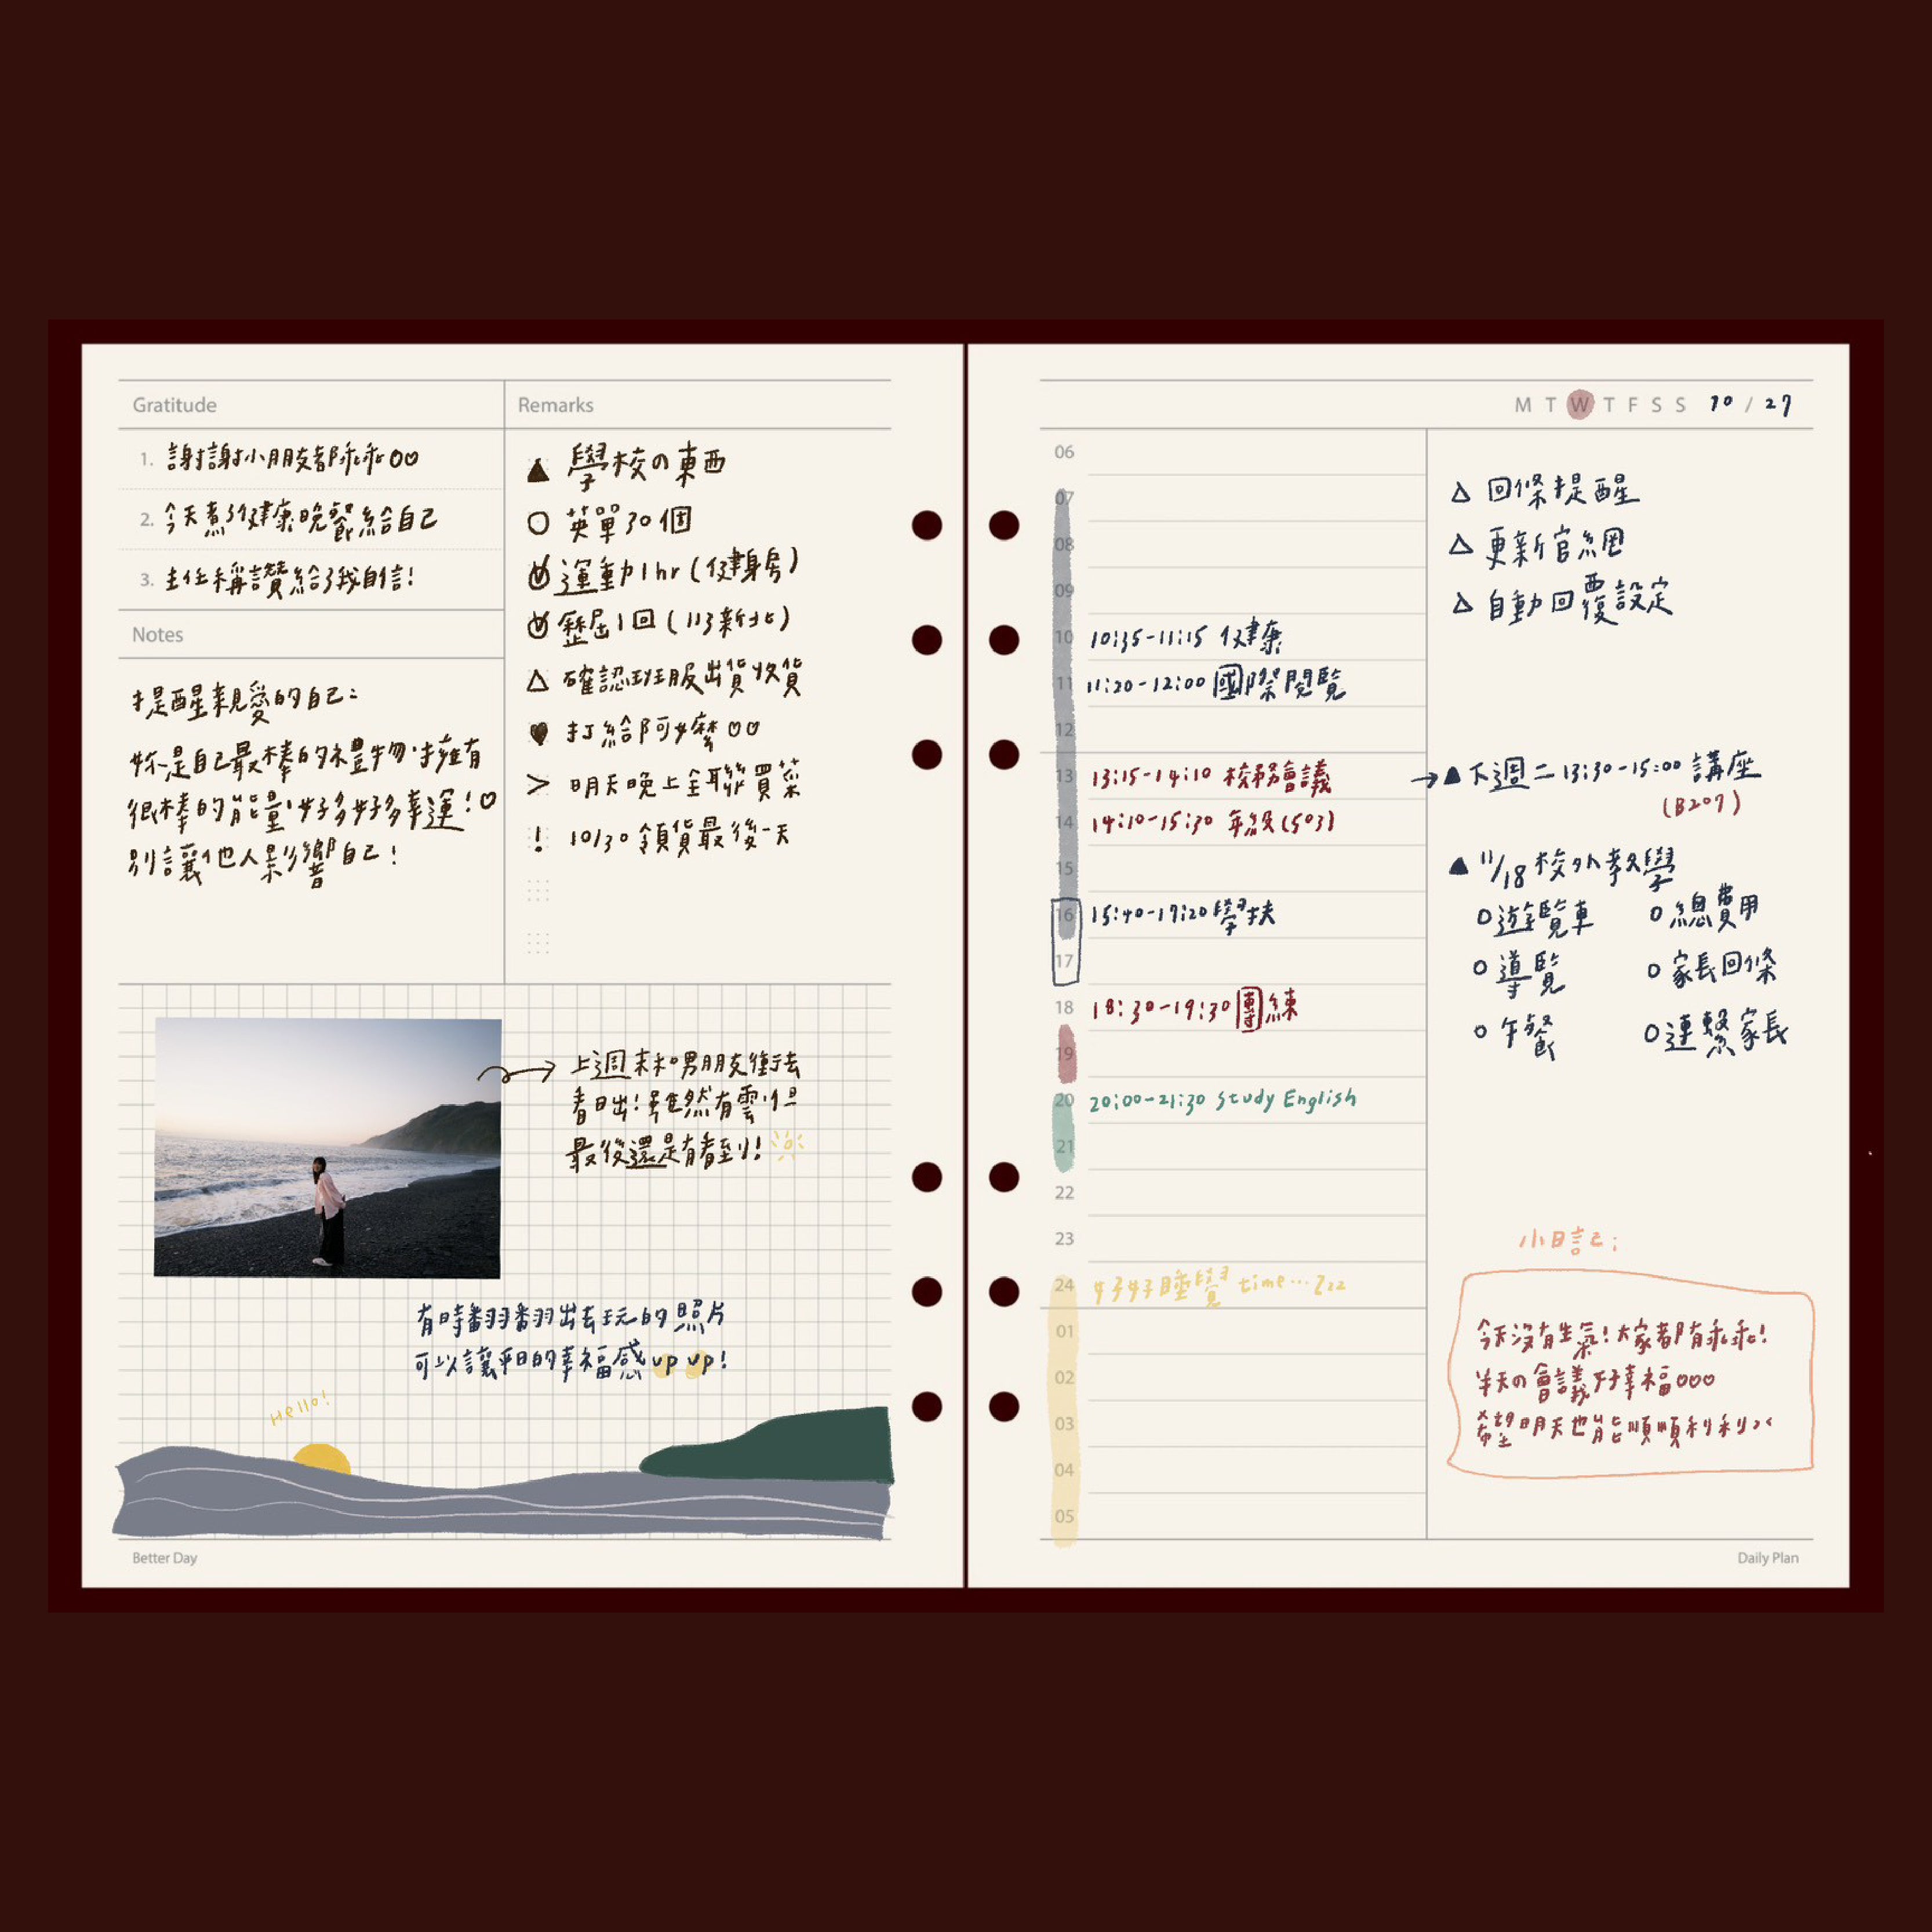 Gratitude
1. 謝謝小朋友都乖乖
2. 今天煮了健康晚餐給自己
3. 主任稱讚給了我自信!
Notes
提醒親愛的自己:
妳是自己最棒的禮物,擁有
很棒的能量,好多好多幸運!♡
別讓他人影響自己!
Remarks
▲ 學校の東西
○ 英單30個
運動1hr(健身房)
歷屆1回(113新北)
△ 確認班服出貨收貨
♥ 打給阿嬤
> 明天晚上全聯買菜
! 10/30 領貨最後一天
上週末和男朋友衝去
看日出!雖然有雲,但
最後還是有看到!
有時翻翻出去玩的照片
可以讓平日的幸福感 up up!
Hello!
Better Day
M T W T F S S 10 / 27
06
07
08
09
10 10:35-11:15 健康
11 11:20-12:00 國際閱覽
12
13 13:15-14:10 校務會議
14 14:10-15:30 年級(503)
15
16 15:40-17:20 學扶
17
18 18:30-19:30 團練
19
20 20:00-21:30 Study English
21
22
23
24 好好睡覺 time... Zzz
01
02
03
04
05
△ 回條提醒
△ 更新官網
△ 自動回覆設定
→▲下週二 13:30-15:00 講座
(B207)
▲ 11/18 校外教學
○遊覽車 ○總費用
○導覽 ○家長回條
○午餐 ○連繫家長
小日記:
今天沒有生氣!大家都有乖乖!
半天の會議好幸福
希望明天也能順順利利
Daily Plan